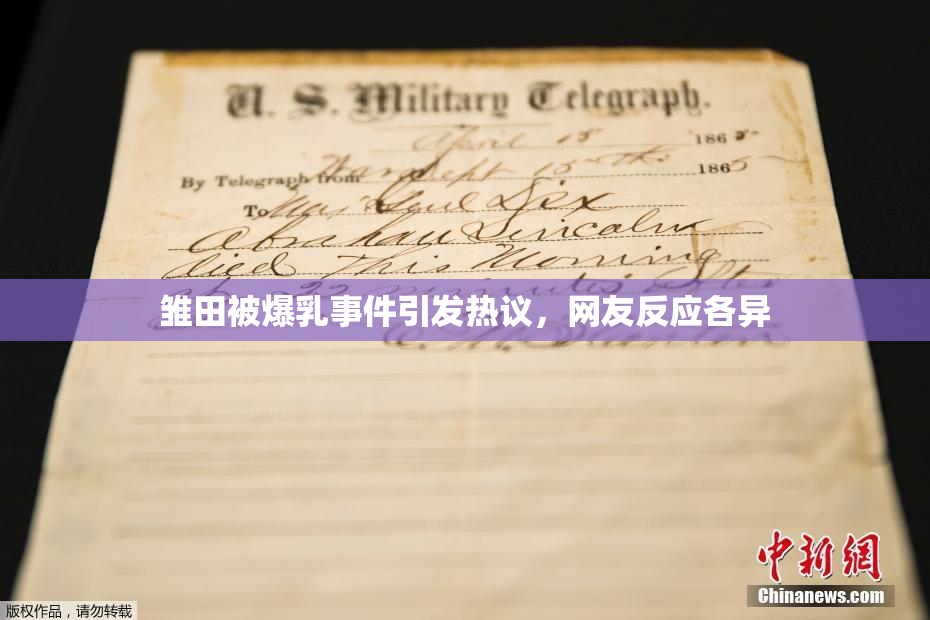 U. S. Military Telegraph.
April 15 1865-
By Telegraph from War Dept 15th 1865
To Maj Genl Dix
Abraham Lincoln
died This Morning
22 minutes after
雏田被爆乳事件引发热议，网友反应各异
E. M. Stanton
中新網
Chinanews.com
版权作品，请勿转载